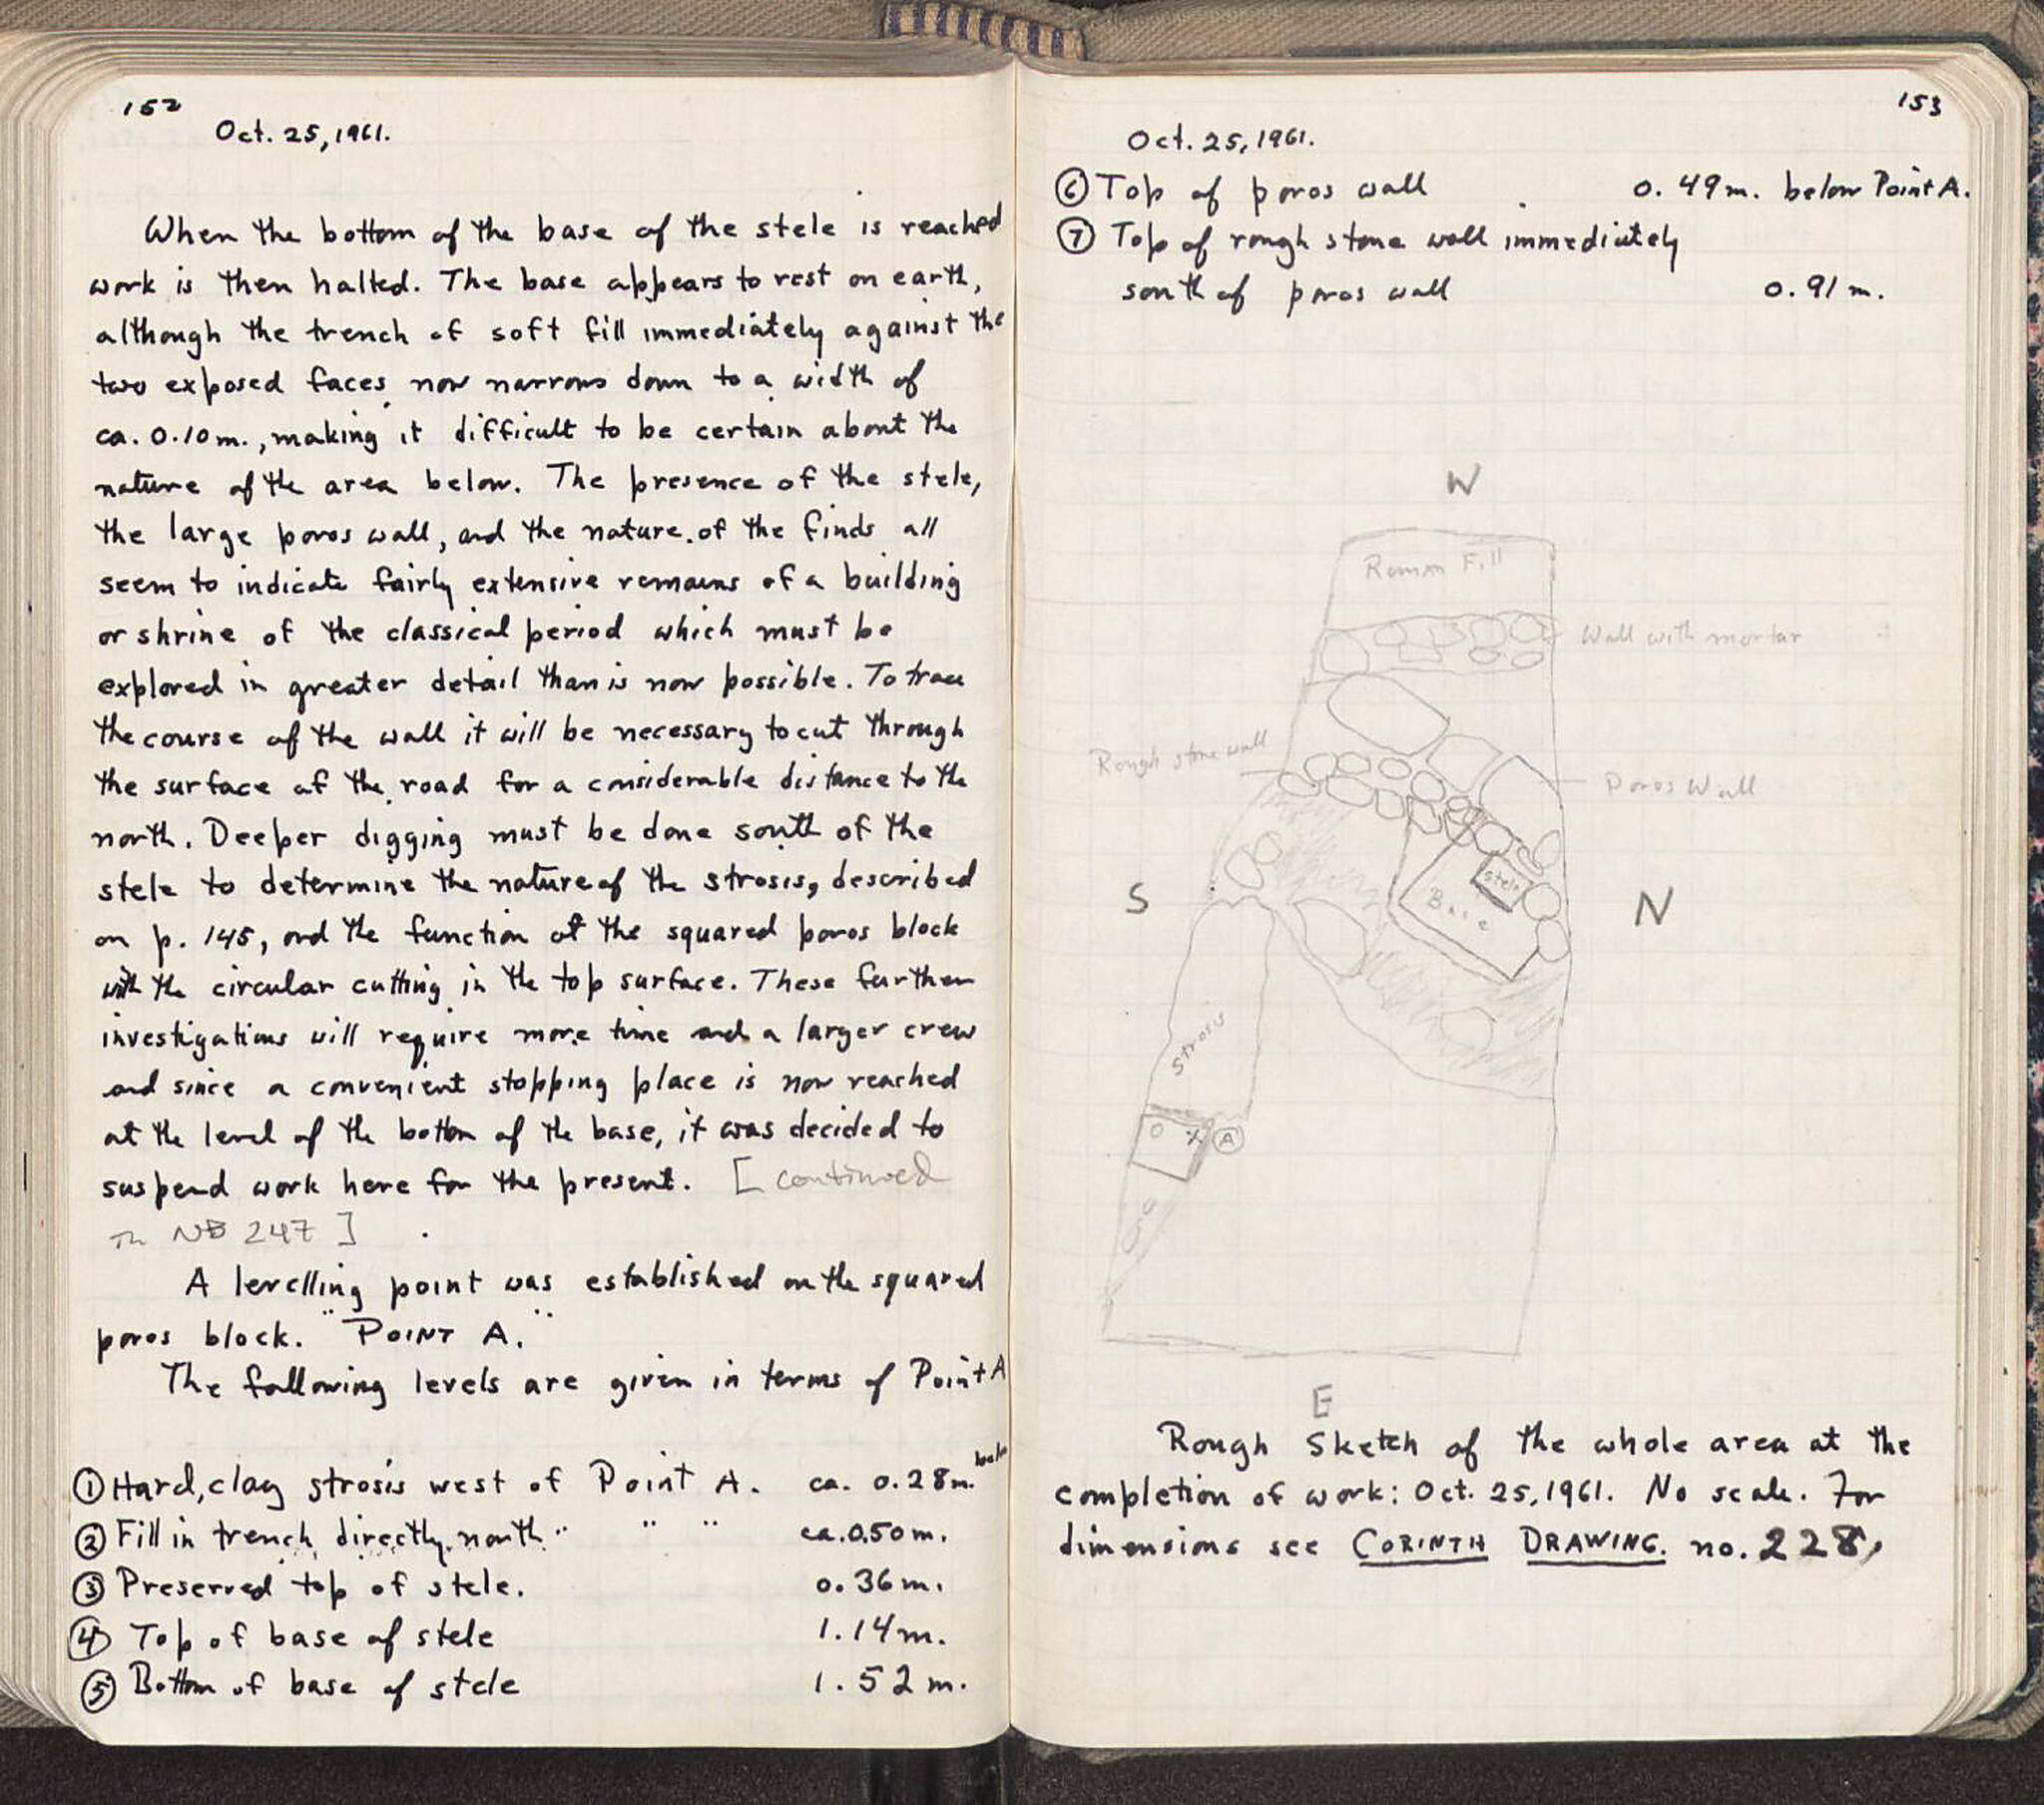 152
Oct. 25, 1961.
When the bottom of the base of the stele is reached
work is then halted. The base appears to rest on earth,
although the trench of soft fill immediately against the
two exposed faces now narrows down to a width of
ca. 0.10 m., making it difficult to be certain about the
nature of the area below. The presence of the stele,
the large poros wall, and the nature of the finds all
seem to indicate fairly extensive remains of a building
or shrine of the classical period which must be
explored in greater detail than is now possible. To trace
the course of the wall it will be necessary to cut through
the surface of the road for a considerable distance to the
north. Deeper digging must be done south of the
stele to determine the nature of the strosis, described
on p. 145, and the function of the squared poros block
with the circular cutting in the top surface. These further
investigations will require more time and a larger crew
and since a convenient stopping place is now reached
at the level of the bottom of the base, it was decided to
suspend work here for the present. [continued
in NB 247]
A levelling point was established on the squared
poros block. "POINT A."
The following levels are given in terms of Point A
① Hard, clay strosis west of Point A. ca. 0.28 m. below
② Fill in trench directly north " " " ca. 0.50 m.
③ Preserved top of stele. 0.36 m.
④ Top of base of stele 1.14 m.
⑤ Bottom of base of stele 1.52 m.
153
Oct. 25, 1961.
⑥ Top of poros wall 0.49 m. below Point A.
⑦ Top of rough stone wall immediately
south of poros wall 0.91 m.
W
Roman Fill
Wall with mortar
Rough stone wall
Poros Wall
stele
Base
S
N
Strosis
X Ⓐ
E
Rough Sketch of the whole area at the
completion of work: Oct. 25, 1961. No scale. For
dimensions see CORINTH DRAWING. no. 228,